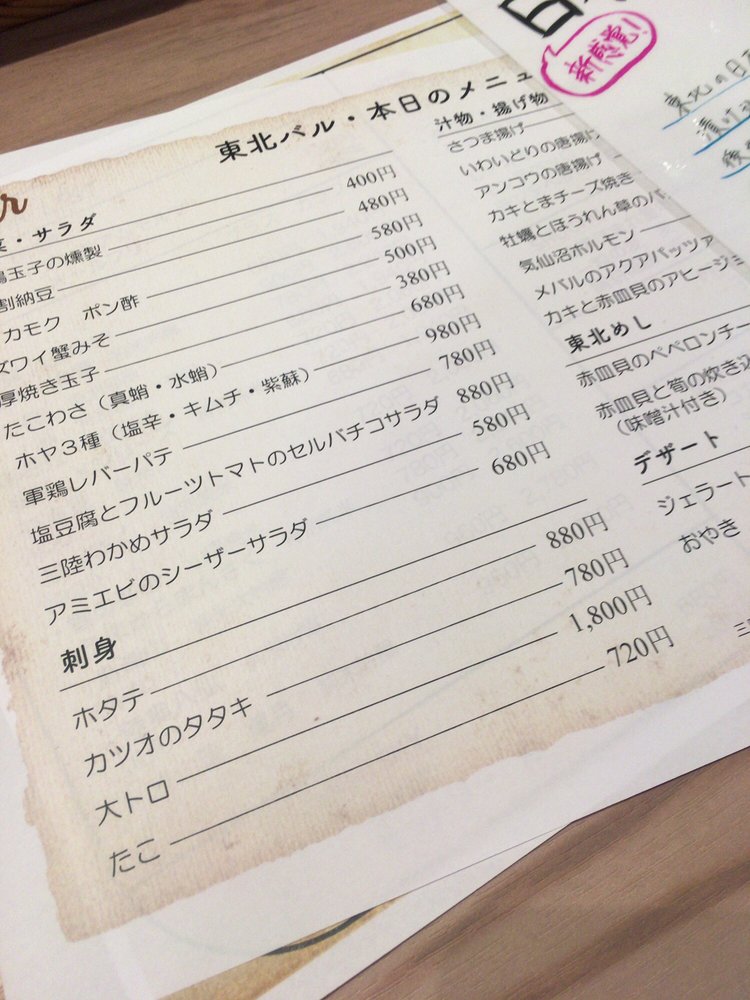 東北バル・本日のメニュ
・サラダ
玉子の燻製 400円
割納豆 480円
カモク ポン酢 580円
ズワイ蟹みそ 500円
厚焼き玉子 380円
たこわさ（真蛸・水蛸） 680円
ホヤ3種（塩辛・キムチ・紫蘇） 980円
軍鶏レバーパテ 780円
塩豆腐とフルーツトマトのセルバチコサラダ 880円
三陸わかめサラダ 580円
アミエビのシーザーサラダ 680円
刺身
ホタテ 880円
カツオのタタキ 780円
大トロ 1,800円
たこ 720円
汁物・揚げ物
さつま揚げ
いわいどりの唐揚げ
アンコウの唐揚げ
カキとまチーズ焼き
牡蠣とほうれん草のバ
気仙沼ホルモン
メバルのアクアパッツァ
カキと赤皿貝のアヒージョ
東北めし
赤皿貝のペペロンチー
赤皿貝と筍の炊き込
（味噌汁付き）
デザート
ジェラート
おやき
三
新感覚!
東北の日
漬け